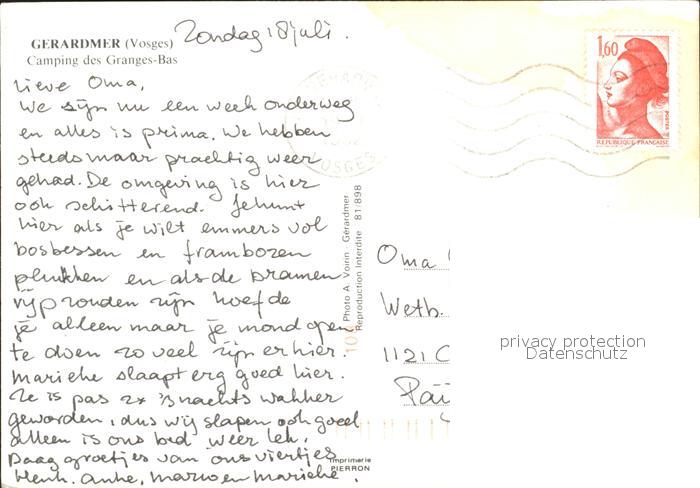 GERARDMER (Vosges)
Camping des Granges-Bas
Zondag 18 juli.
Lieve Oma,
We zijn nu een week onderweg
en alles is prima. We hebben
steeds maar prachtig weer
gehad. De omgeving is hier
ook schitterend. Je kunt
hier als je wilt emmers vol
bosbessen en frambozen
plukken en als de bramen
rijp zouden zijn hoefde
je alleen maar je mond open
te doen zo veel zijn er hier.
Marieke slaapt erg goed hier.
Ze is pas 2x 's nachts wakker
geworden, dus wij slapen ook goed
alleen is ons bed weer lek.
Daag groetjes van ons viertjes
Henk, Anke, Marco en Marieke.
Photo A. Voirin - Gérardmer
Reproduction Interdite 81/898
Imprimerie
PIERRON
1,60
POSTES
REPUBLIQUE FRANÇAISE
VOSGES
Oma
Weth.
1121 C
privacy protection
Datenschutz